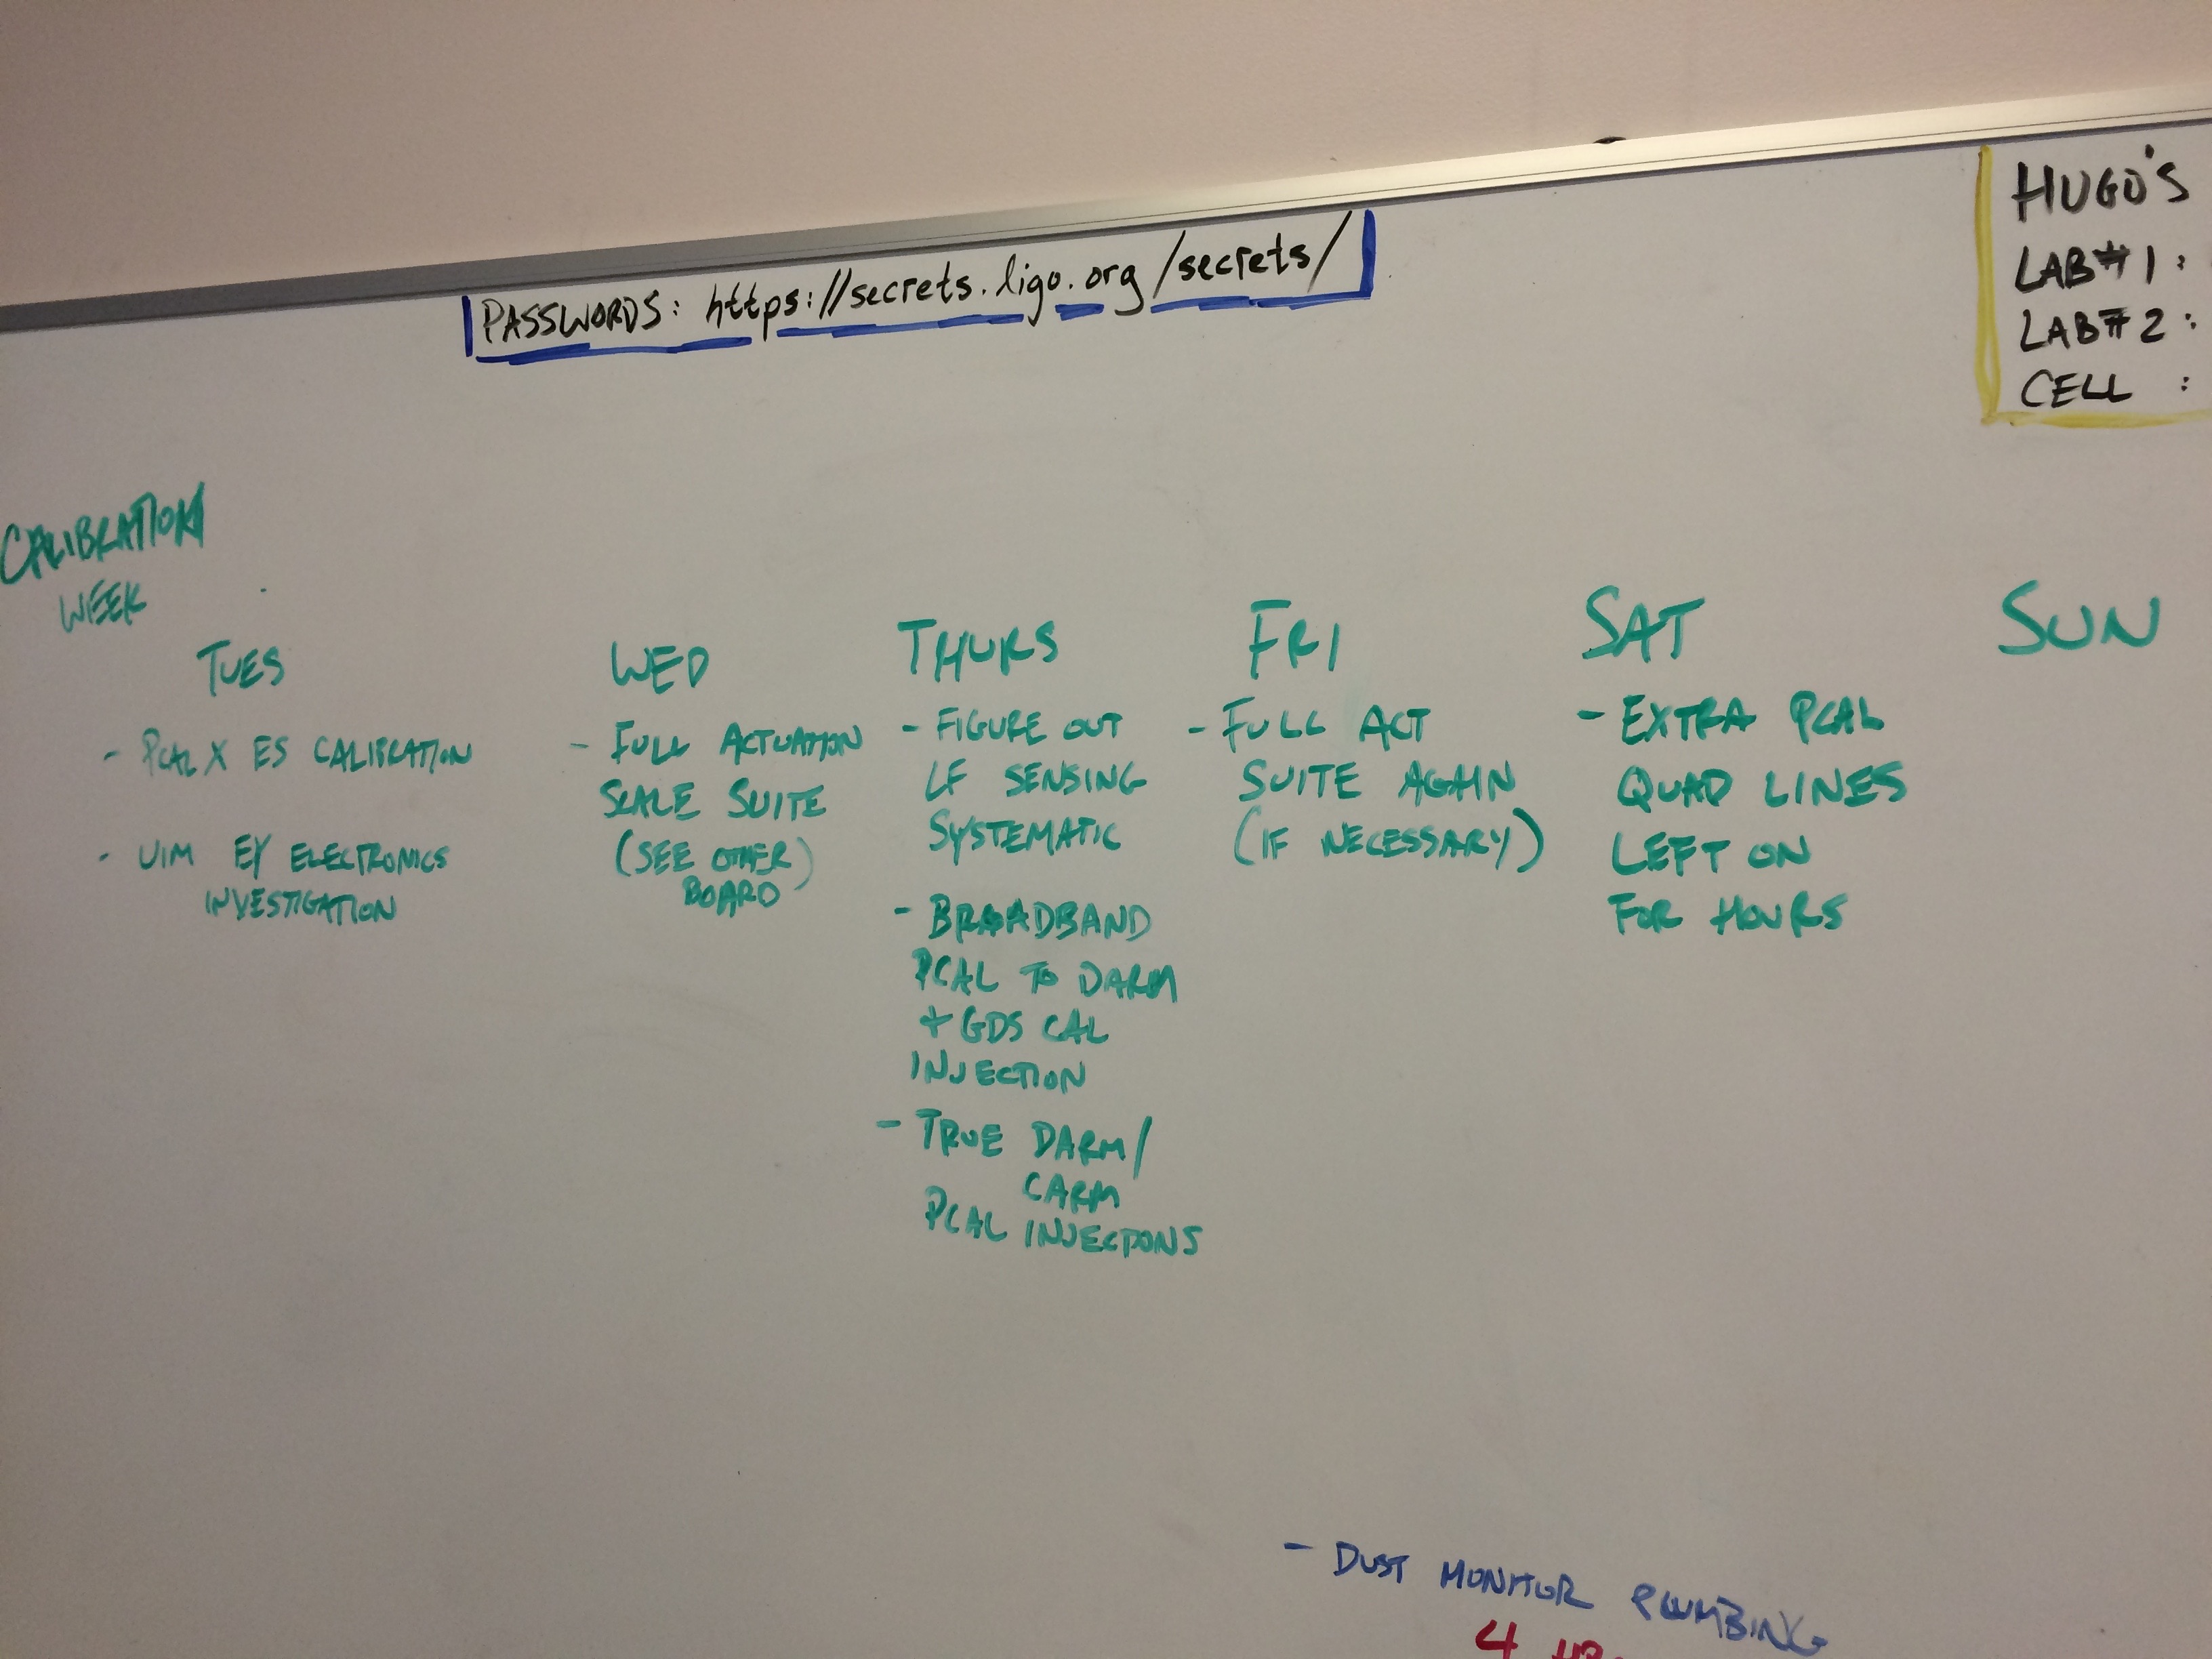 PASSWORDS: https://secrets.ligo.org/secrets/
HUGO'S
LAB#1:
LAB#2:
CELL :
CALIBRATION
WEEK
TUES
- PCAL X ES CALIBRATION
- UIM EY ELECTRONICS
INVESTIGATION
WED
- FULL ACTUATION
SCALE SUITE
(SEE OTHER)
BOARD
THURS
- FIGURE OUT
LF SENSING
SYSTEMATIC
- BROADBAND
PCAL TO DARM
+ GDS CAL
INJECTION
- TRUE DARM/
CARM
PCAL INJECTIONS
FRI
- FULL ACT
SUITE AGAIN
(IF NECESSARY)
SAT
- EXTRA PCAL
QUAD LINES
LEFT ON
FOR HOURS
SUN
- DUST MONITOR PLUMBING
4